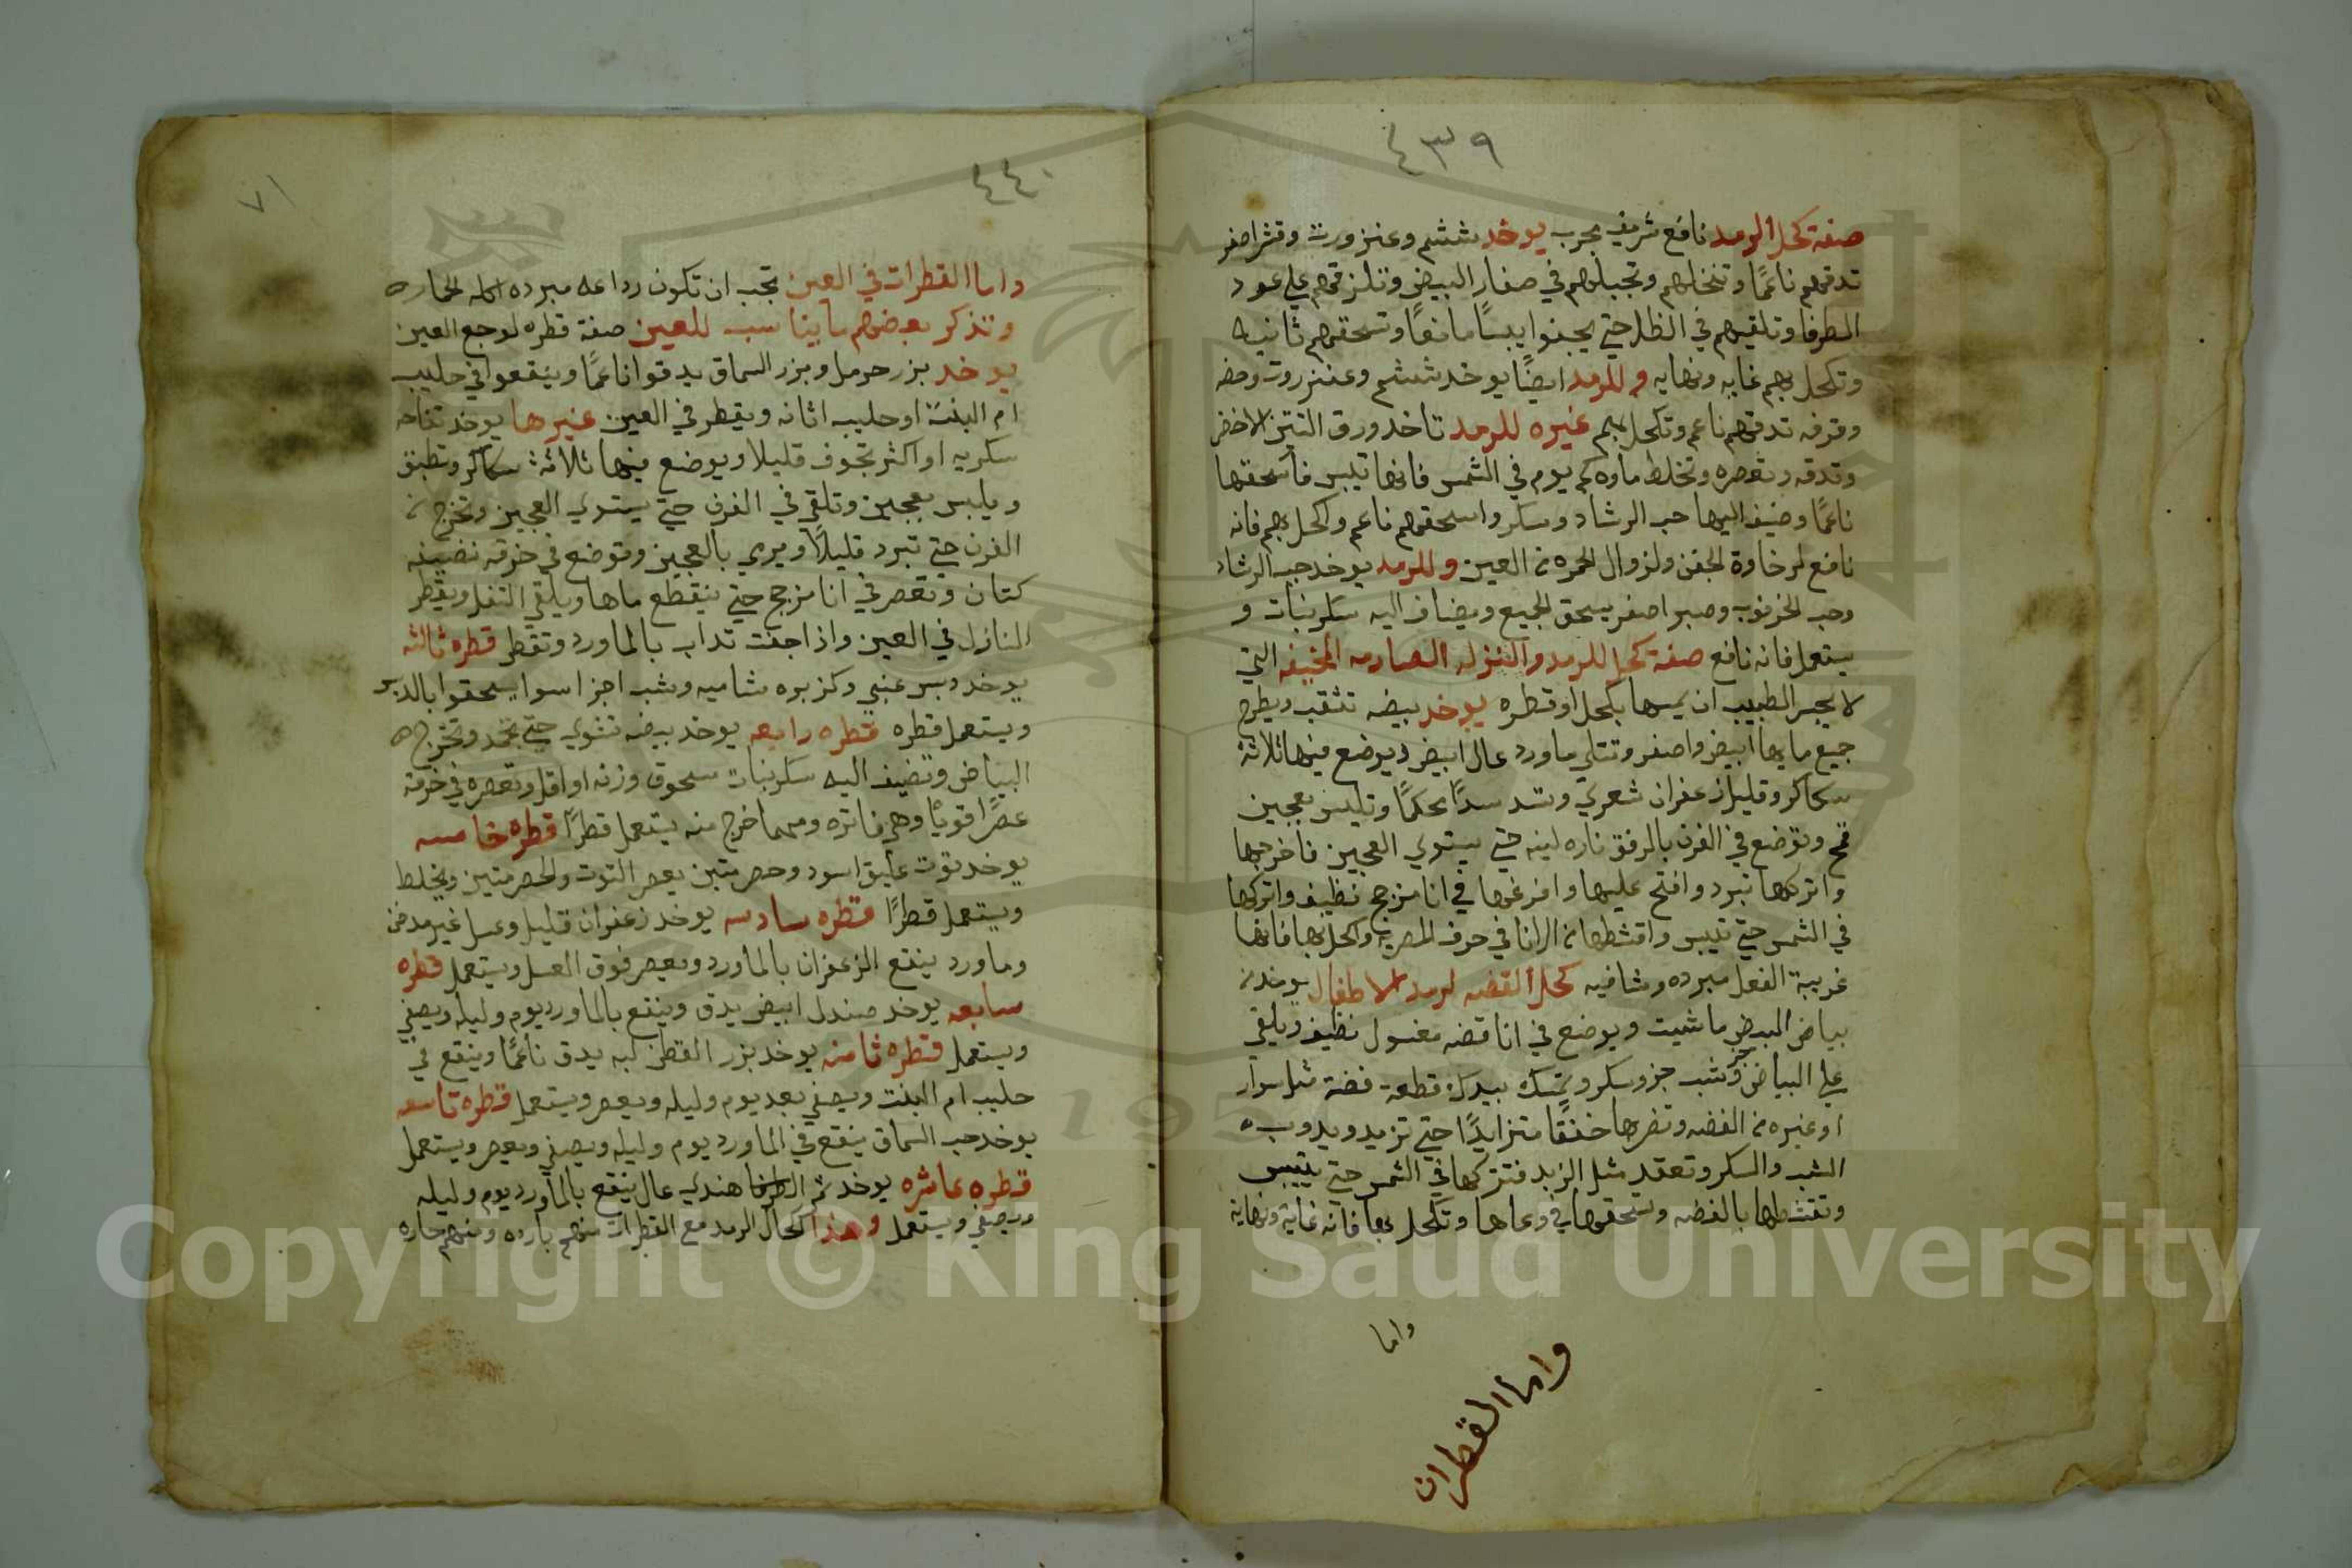 ٤٣٩
صفة كحل الرمد نافع شريف مجرب يوخد ششم وعنزورت وقشر اصفر
تدقهم ناعمًا وتنخلهم وتجبلهم في صفار البيض وتلزقهم علي عود
الطرفا وتلقيهم في الظل حتي يجفوا يبسًا مانعًا وتسحقهم ثانيه
وتكحل بهم غايه ونهايه وللرمد ايضًا يوخد ششم وعنزروت وحضه
وقرفه تدقهم ناعم وتكحل بهم غيره للرمد تاخد ورق التين الاخضر
وتدقه وتعصره وتخلط ماوه كم يوم في الشمس فانها تيبس فاسحقها
ناعمًا وضيف اليها حب الرشاد وسكر واسحقهم ناعم واكحل بهم فانه
نافع لرخاوة الجفن ولزوال الحمره من العين وللرمد يوخد حب الرشاد
وحب الخرنوب وصبر اصفر يسحق الجميع ويضاف اليه سكر نبات و
يستعمل فانه نافع صفة كحل للرمد والنزله الصارمه المخيفه التي
لا يجسر الطبيب ان يمسها بكحل او قطره يوخد بيضه تنقب ويطرح
جميع مابها ابيض واصفر وتتلي ماورد عال ابيض ويوضع فيها ثلاثة
سكاكر وقليل زعفران شعري وتسد سدًا محكمًا وتلبس بعجين
قمح وتوضع في الفرن بالرفق ناره لينه حتي يستوي العجين فاخرجها
واتركها تبرد وافتح عليها وافرغها في انا مزجج نظيف واتركها
في الشمس حتي تيبس واقشطها من الانا في حرف المصريه واكحل بها فانها
غريبة الفعل مبرده وشافيه كحل الفضه لرمد الاطفال يوخد من
بياض البيض ما شيت ويوضع في انا فضه مغسول نظيف ويلقي
علي البياض جز وشب جز وسكر وتمسك بيدك قطعة فضة مثل سوار
او غيره من الفضه وتضربها خفقًا متزايدًا حتي تزيد ويدوب
الشب والسكر وتعقد مثل الزبد فتتركها في الشمس حتي تيبس
وتقشطها بالفضه وتسحقها في وعاها وتكحل بها فانه غاية ونهاية
واما
واما القطران
٤٤٠
٧١
واما القطرات في العين تجب ان تكون رداعه مبرده الحاره
ونذكر بعضهم ما يناسب للعين صفة قطره لوجع العين
يوخد بزر حرمل وبزر السماق يدقوا ناعمًا وينقعوا في حليب
ام البنت او حليب اتانه ويقطر في العين غيرها يوخد تفاحه
سكريه او اكثر تجوف قليلا ويوضع فيها ثلاثة سكاكر وتطبق
ويلبس بعجين وتلقي في الفرن حتي يستوي العجين وتخرج من
الفرن حتي تبرد قليلاً ويري بالعجين وتوضع في خرقه نضيفه
كتان وتعصر في انا مزجج حتي ينقطع ماها ويلقي التفل ويقطر
النازل في العين واذا جفت تداب بالماورد وتقطر قطره ثالثه
يوخد دبس عنبي وكزبره شاميه وشب اجزا سوا يسحقوا بالدبس
ويستعمل قطره قطره رابعه يوخد بيضه تشوي حتي تجمد وتخرج
البياض وتضيف اليه سكر نبات مسحوق وزنه او اقل وتعصره في خرقة
عصرًا قويًا وهي فاتره ومهما خرج منه يستعمل قطرًا قطره خامسه
يوخد توت عليق اسود وحصرمتين يعصر التوت والحصرمتين ويخلط
ويستعمل قطرًا قطره سادسه يوخد زعفران قليل وعسل غير مدخن
وماورد ينقع الزعفران بالماورد ويعصر فوق العسل ويستعمل قطره
سابعه يوخد صندل ابيض يدق وينقع بالماورد يوم وليله ويصفي
ويستعمل قطره ثامنه يوخد بزر القطن لبه يدق ناعمًا وينقع في
حليب ام البنت ويصفي بعد يوم وليله ويعصر ويستعمل قطره تاسعه
يوخد حب السماق ينقع في الماورد يوم وليله ويصفي ويعصر ويستعمل
قطره عاشره يوخد تمر هندي عال ينقع بالماورد يوم وليله
ويصفي ويستعمل وهذا كحال الرمد مع القطرات منهم بارده ومنهم حاره
Copyright © King Saud University